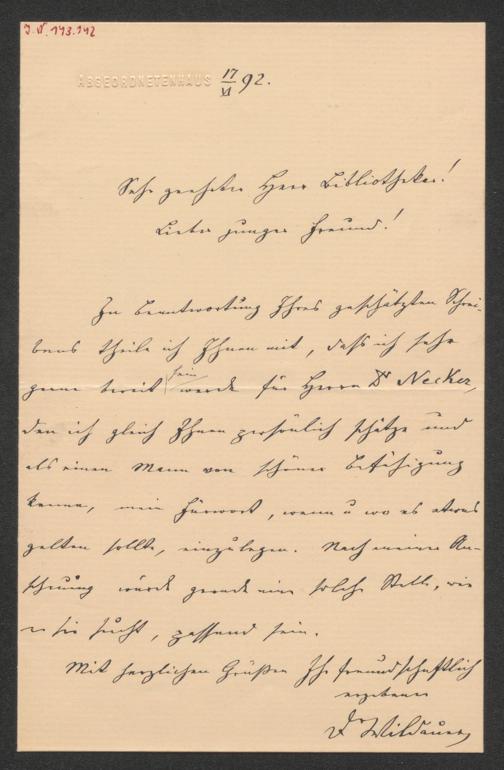 I.N. 143.142
ABGEORDNETENHAUS 17/VI 92.
Sehr geehrter Herr Bibliothekar!
Lieber junger Freund!
In Beantwortung Ihres geschätzten Schrei-
bens theile ich Ihnen mit, dass ich sehr
gerne bereit sein werde für Herrn Dr Necker,
den ich gleich Ihnen persönlich schätze und
als einen Mann von schöner Befähigung
kenne, mein Fürwort, wenn u wo es etwas
gelten sollte, einzulegen. Nach meiner An-
schauung würde gerade eine solche Stelle, wie
er sie sucht, passend sein.
Mit herzlichen Grüßen Ihr freundschaftlich
ergebener
Dr Wildauer